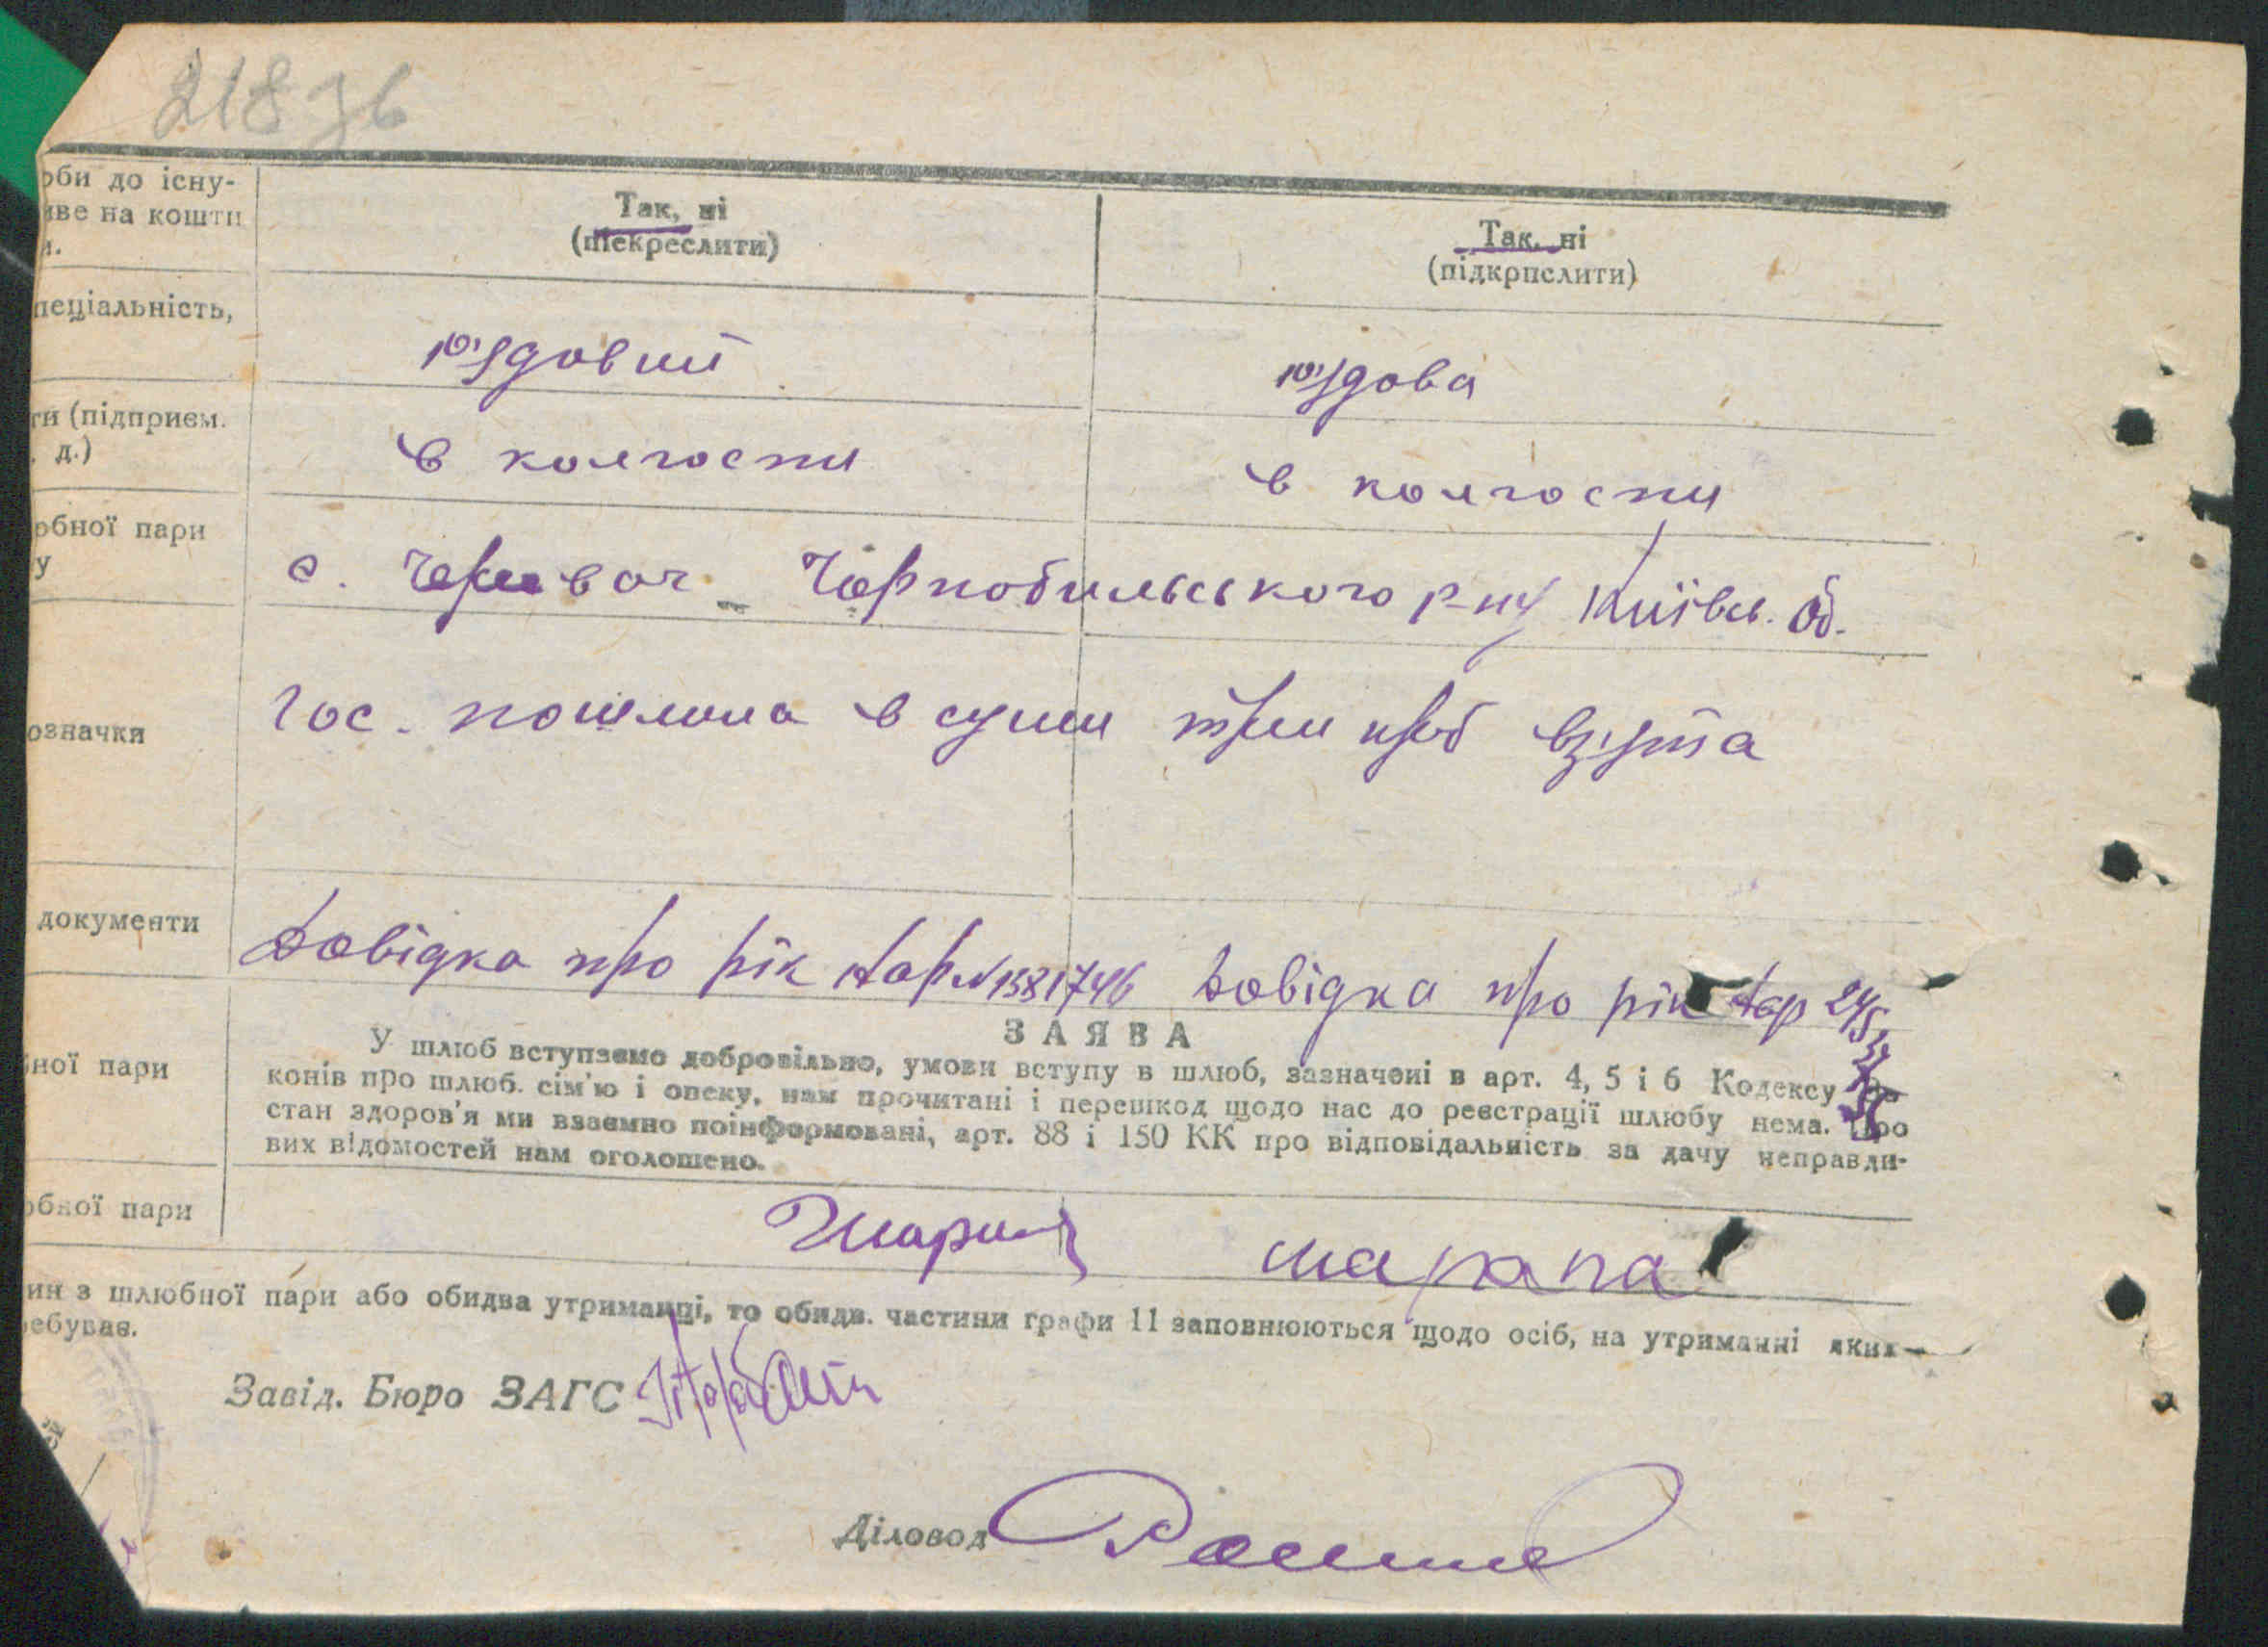 218 зв
оби до існу-
иве на кошти
и.
Так, ні
(підкреслити)
Так, ні
(підкрпслити)
пеціальність,
їздовий
їздова
ти (підприєм.
. д.)
в колгоспи
в колгоспи
юбної пари
у
с. Черевач Чорнобильського р-ну Київсь. Об.
означки
Гос. пошлина в суми три крб взята
документи
Довідка про рік нар № 1381746 Довідка про рік нар 24/5
ЗАЯВА
ної пари
У шлюб вступаємо добровільно, умови вступу в шлюб, зазначені в арт. 4, 5 і 6 Кодексу За-
конів про шлюб. сім'ю і опеку, нам прочитані і перешкод щодо нас до реєстрації шлюбу нема. Про
стан здоров'я ми взаємно поінформовані, арт. 88 і 150 КК про відповідальність за дачу неправди-
вих відомостей нам оголошено.
юбної пари
ин з шлюбної пари або обидва утриманці, то обидв. частини графи 11 заповнюються щодо осіб, на утриманні яких
ребуває.
Завід. Бюро ЗАГС
Діловод